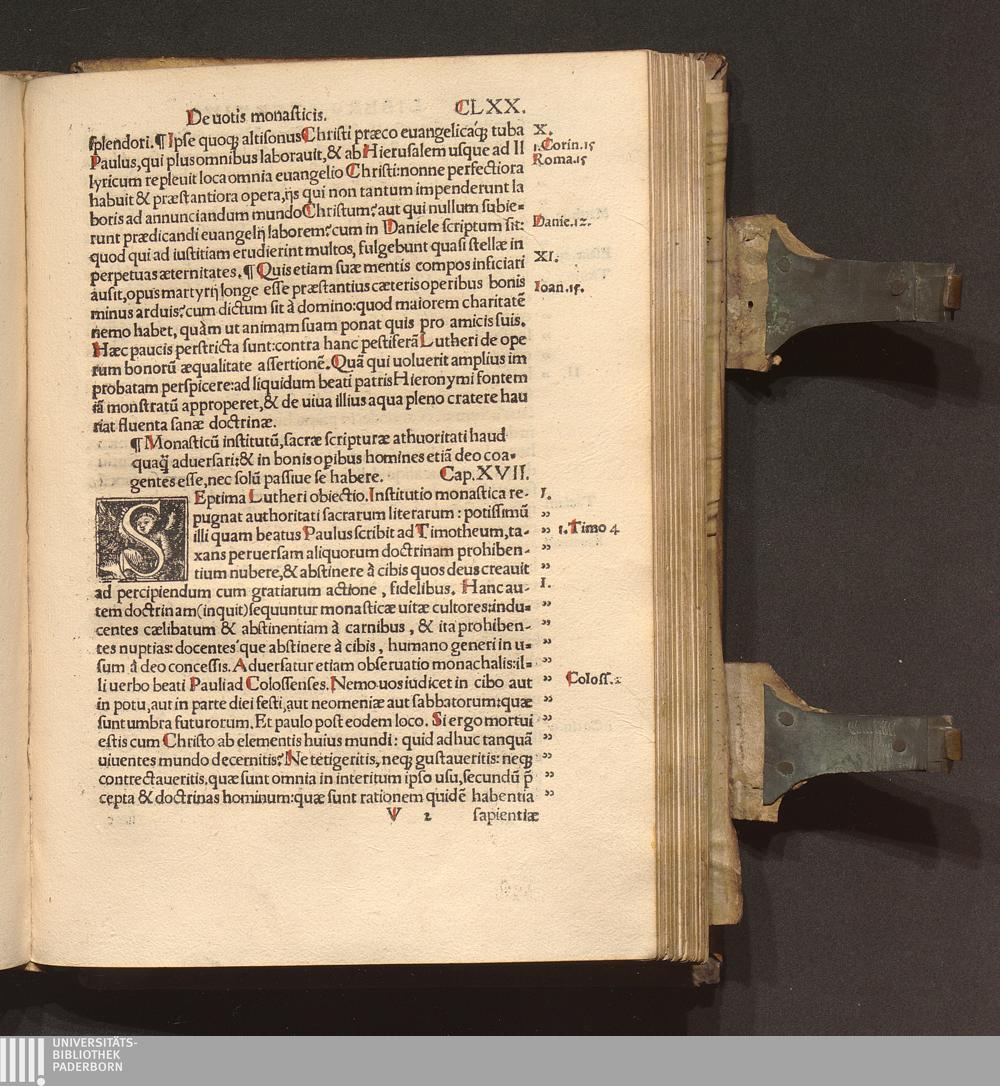 De uotis monasticis. CLXX.
splendori. ¶ Ipse quoq; altisonus Christi præco euangelicáq; tuba X.
Paulus, qui plus omnibus laborauit, & ab Hierusalem usque ad Il 1.Corin.15
lyricum repleuit loca omnia euangelio Christi: nonne perfectiora Roma.15
habuit & præstantiora opera, ijs qui non tantum impenderunt la
boris ad annunciandum mundo Christum? aut qui nullum subie-
runt prædicandi euangelij laborem? cum in Daniele scriptum sit: Danie.12.
quod qui ad iustitiam erudierint multos, fulgebunt quasi stellæ in
perpetuas æternitates. ¶ Quis etiam suæ mentis compos inficiari XI.
ausit, opus martyrij longe esse præstantius cæteris operibus bonis
minus arduis? cum dictum sit à domino: quod maiorem charitatẽ Ioan.15.
nemo habet, quàm ut animam suam ponat quis pro amicis suis.
Hæc paucis perstricta sunt: contra hanc pestiferã Lutheri de ope
rum bonorũ æqualitate assertionẽ. Quã qui uoluerit amplius im
probatam perspicere: ad liquidum beati patris Hieronymi fontem
iã monstratũ approperet, & de uiua illius aqua pleno cratere hau
riat fluenta sanæ doctrinæ.
¶ Monasticũ institutũ, sacræ scripturæ athuoritati haud
quaq̃ aduersari: & in bonis opibus homines etiã deo coa-
gentes esse, nec solũ passiue se habere. Cap. XVII.
SEptima Lutheri obiectio. Institutio monastica re- 1.
pugnat authoritati sacrarum literarum: potissimũ „
illi quam beatus Paulus scribit ad Timotheum, ta- „ 1.Timo 4
xans peruersam aliquorum doctrinam prohiben- „
tium nubere, & abstinere à cibis quos deus creauit „
ad percipiendum cum gratiarum actione, fidelibus. Hanc au- I.
tem doctrinam (inquit) sequuntur monasticæ uitæ cultores: indu- „
centes cælibatum & abstinentiam à carnibus, & ita prohiben- „
tes nuptias: docentes'que abstinere à cibis, humano generi in u- „
sum à deo concessis. Aduersatur etiam obseruatio monachalis: il- „
li uerbo beati Pauli ad Colossenses. Nemo uos iudicet in cibo aut „ Coloss.2
in potu, aut in parte diei festi, aut neomeniæ aut sabbatorum: quæ „
sunt umbra futurorum. Et paulo post eodem loco. Si ergo mortui „
estis cum Christo ab elementis huius mundi: quid adhuc tanquã „
uiuentes mundo decernitis? Ne tetigeritis, neq; gustaueritis: neq; „
contrectaueritis, quæ sunt omnia in interitum ipso usu, secundũ p̃ „
cepta & doctrinas hominum: quæ sunt rationem quidẽ habentia „
V 2 sapientiæ
UNIVERSITÄTS-
BIBLIOTHEK
PADERBORN